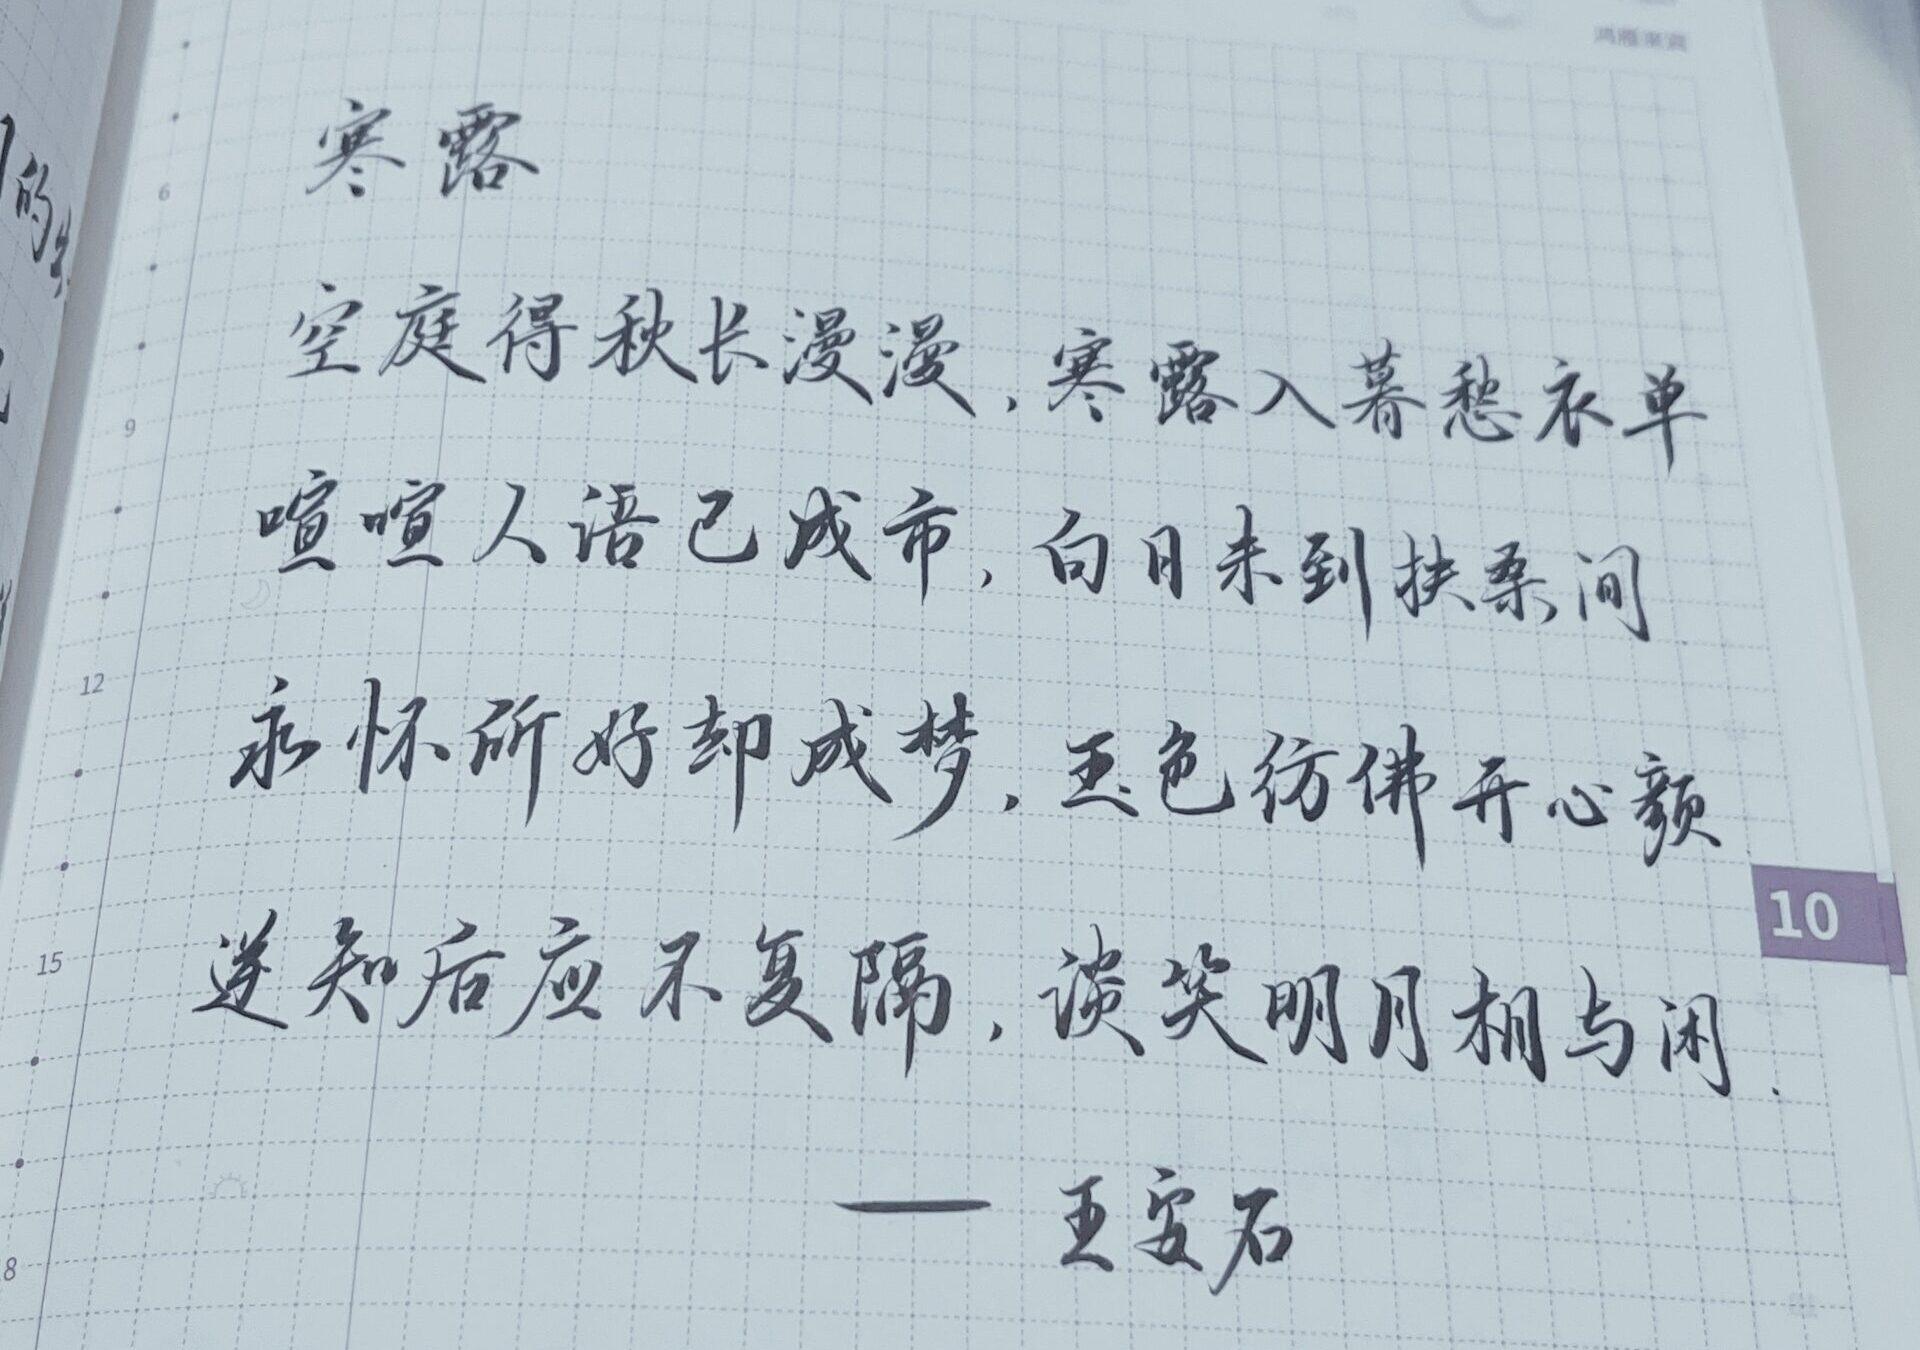 鸿雁来宾
寒露
空庭得秋长漫漫，寒露入暮愁衣单
喧喧人语已成市，白日未到扶桑间
永怀所好却成梦，玉色彷佛开心颜
逆知后应不复隔，谈笑明月相与闲.
— 王安石
的
6
9
12
15
8
10